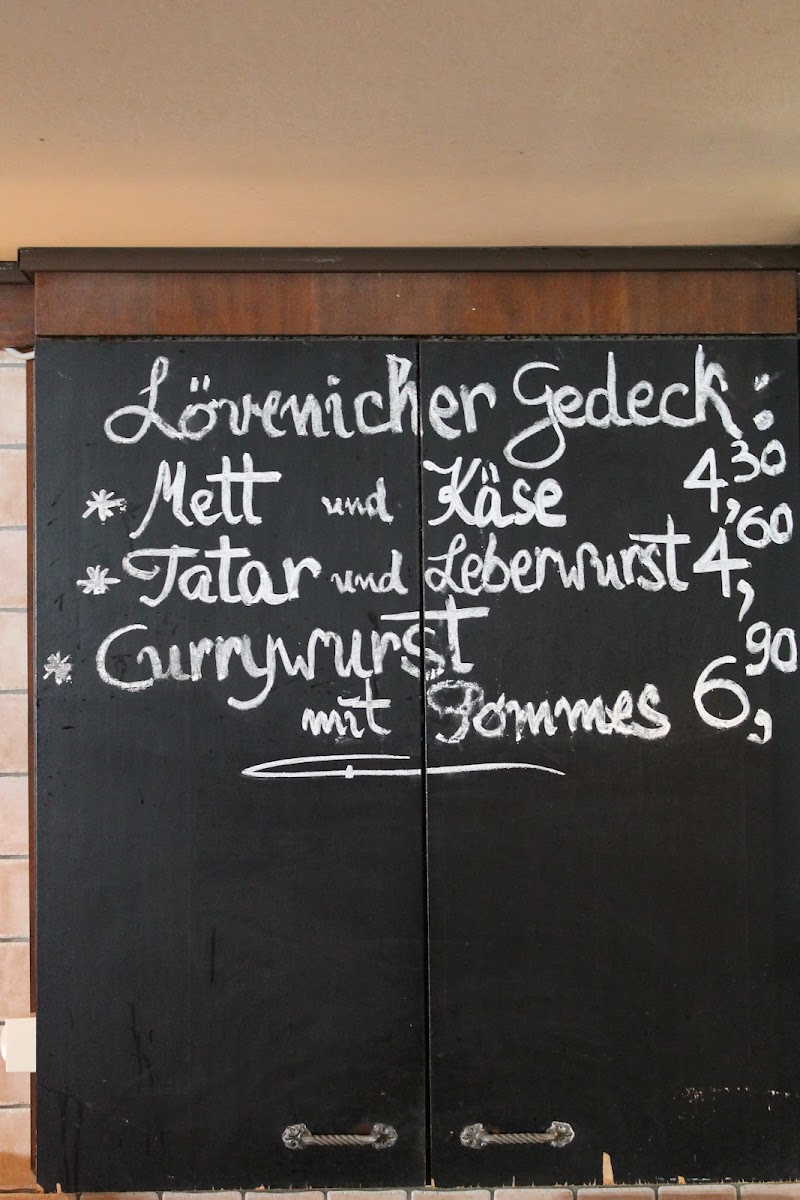 Lövenicher Gedeck:
* Mett und Käse 4,30
* Tatar und Leberwurst 4,60
* Currywurst
mit Pommes 6,90